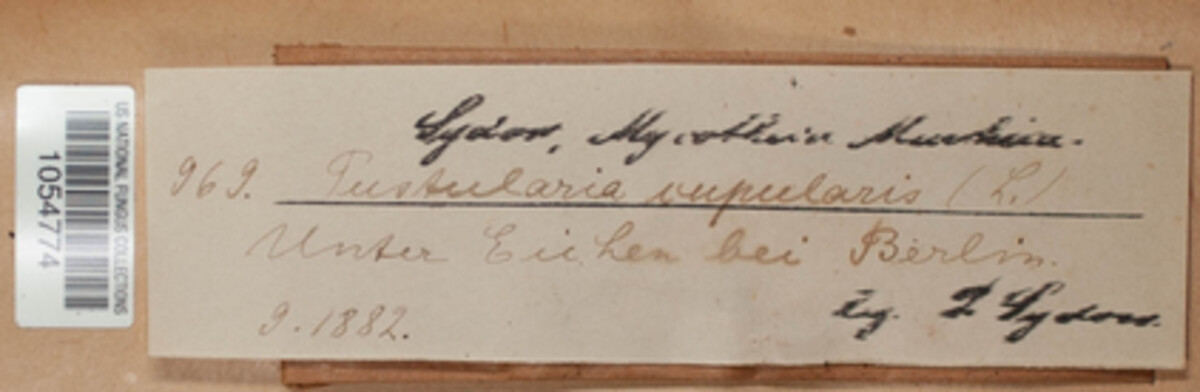 Sydow, Mycotheca Marchica.
969. Pustularia cupularis (L.)
Unter Eichen bei Berlin.
9. 1882.
Leg. P Sydow.
US NATIONAL FUNGUS COLLECTIONS
1054774